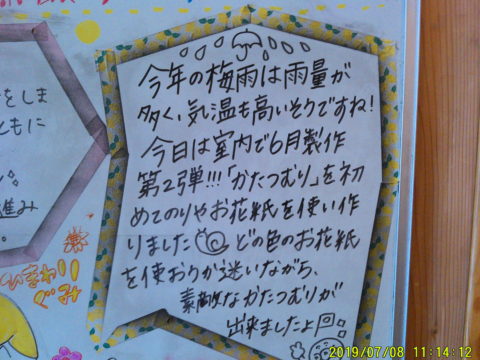 をしま
ともに
進み
。
ひまわり
ぐみ
今年の梅雨は雨量が
多く、気温も高いそうですね!
今日は室内で6月製作
第2弾!!!「かたつむり」を初
めてのりやお花紙を使い作
りました どの色のお花紙
を使おうか迷いながら、
素敵なかたつむりが
出来ましたよ
2019/07/08 11:14:12